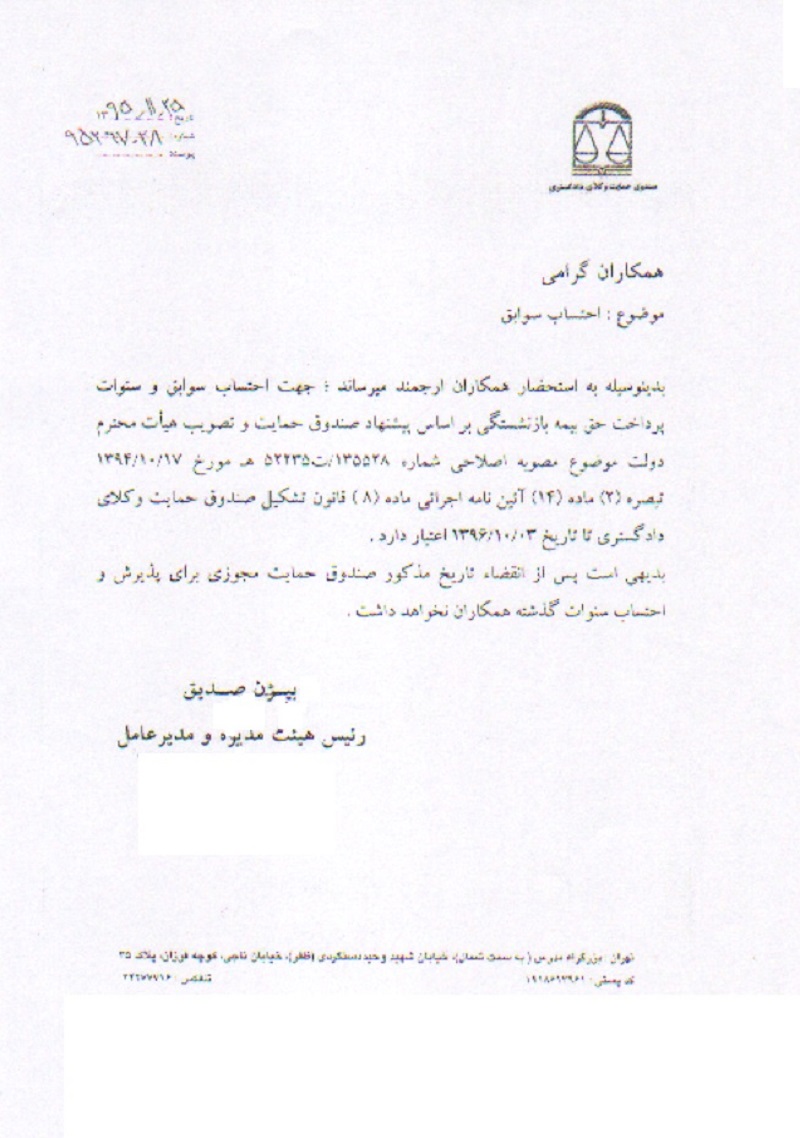 صندوق حمایت وکلای دادگستری
تاریخ: ۱۳۹۵/۱۱/۲۵
شماره:
پیوست:
همکاران گرامی
موضوع : احتساب سوابق
بدینوسیله به استحضار همکاران ارجمند میرساند ؛ جهت احتساب سوابق و سنوات
پرداخت حق بیمه بازنشستگی بر اساس پیشنهاد صندوق حمایت و تصویب هیأت محترم
دولت موضوع مصوبه اصلاحی شماره ۱۳۵۵۲۸/ت۵۲۲۳۵ هـ مورخ ۱۳۹۴/۱۰/۱۷
تبصره (۲) ماده (۱۴) آئین نامه اجرائی ماده (۸) قانون تشکیل صندوق حمایت وکلای
دادگستری تا تاریخ ۱۳۹۶/۱۰/۰۳ اعتبار دارد .
بدیهی است پس از انقضاء تاریخ مذکور صندوق حمایت مجوزی برای پذیرش و
احتساب سنوات گذشته همکاران نخواهد داشت .
بیـژن صـدیق
رئیس هیئت مدیره و مدیرعامل
تهران : بزرگراه مدرس ( به سمت شمال)، خیابان شهید وحید دستگردی (ظفر)، خیابان ناجی، کوچه فوزان، پلاک ۳۵
کد پستی:
تلفکس :